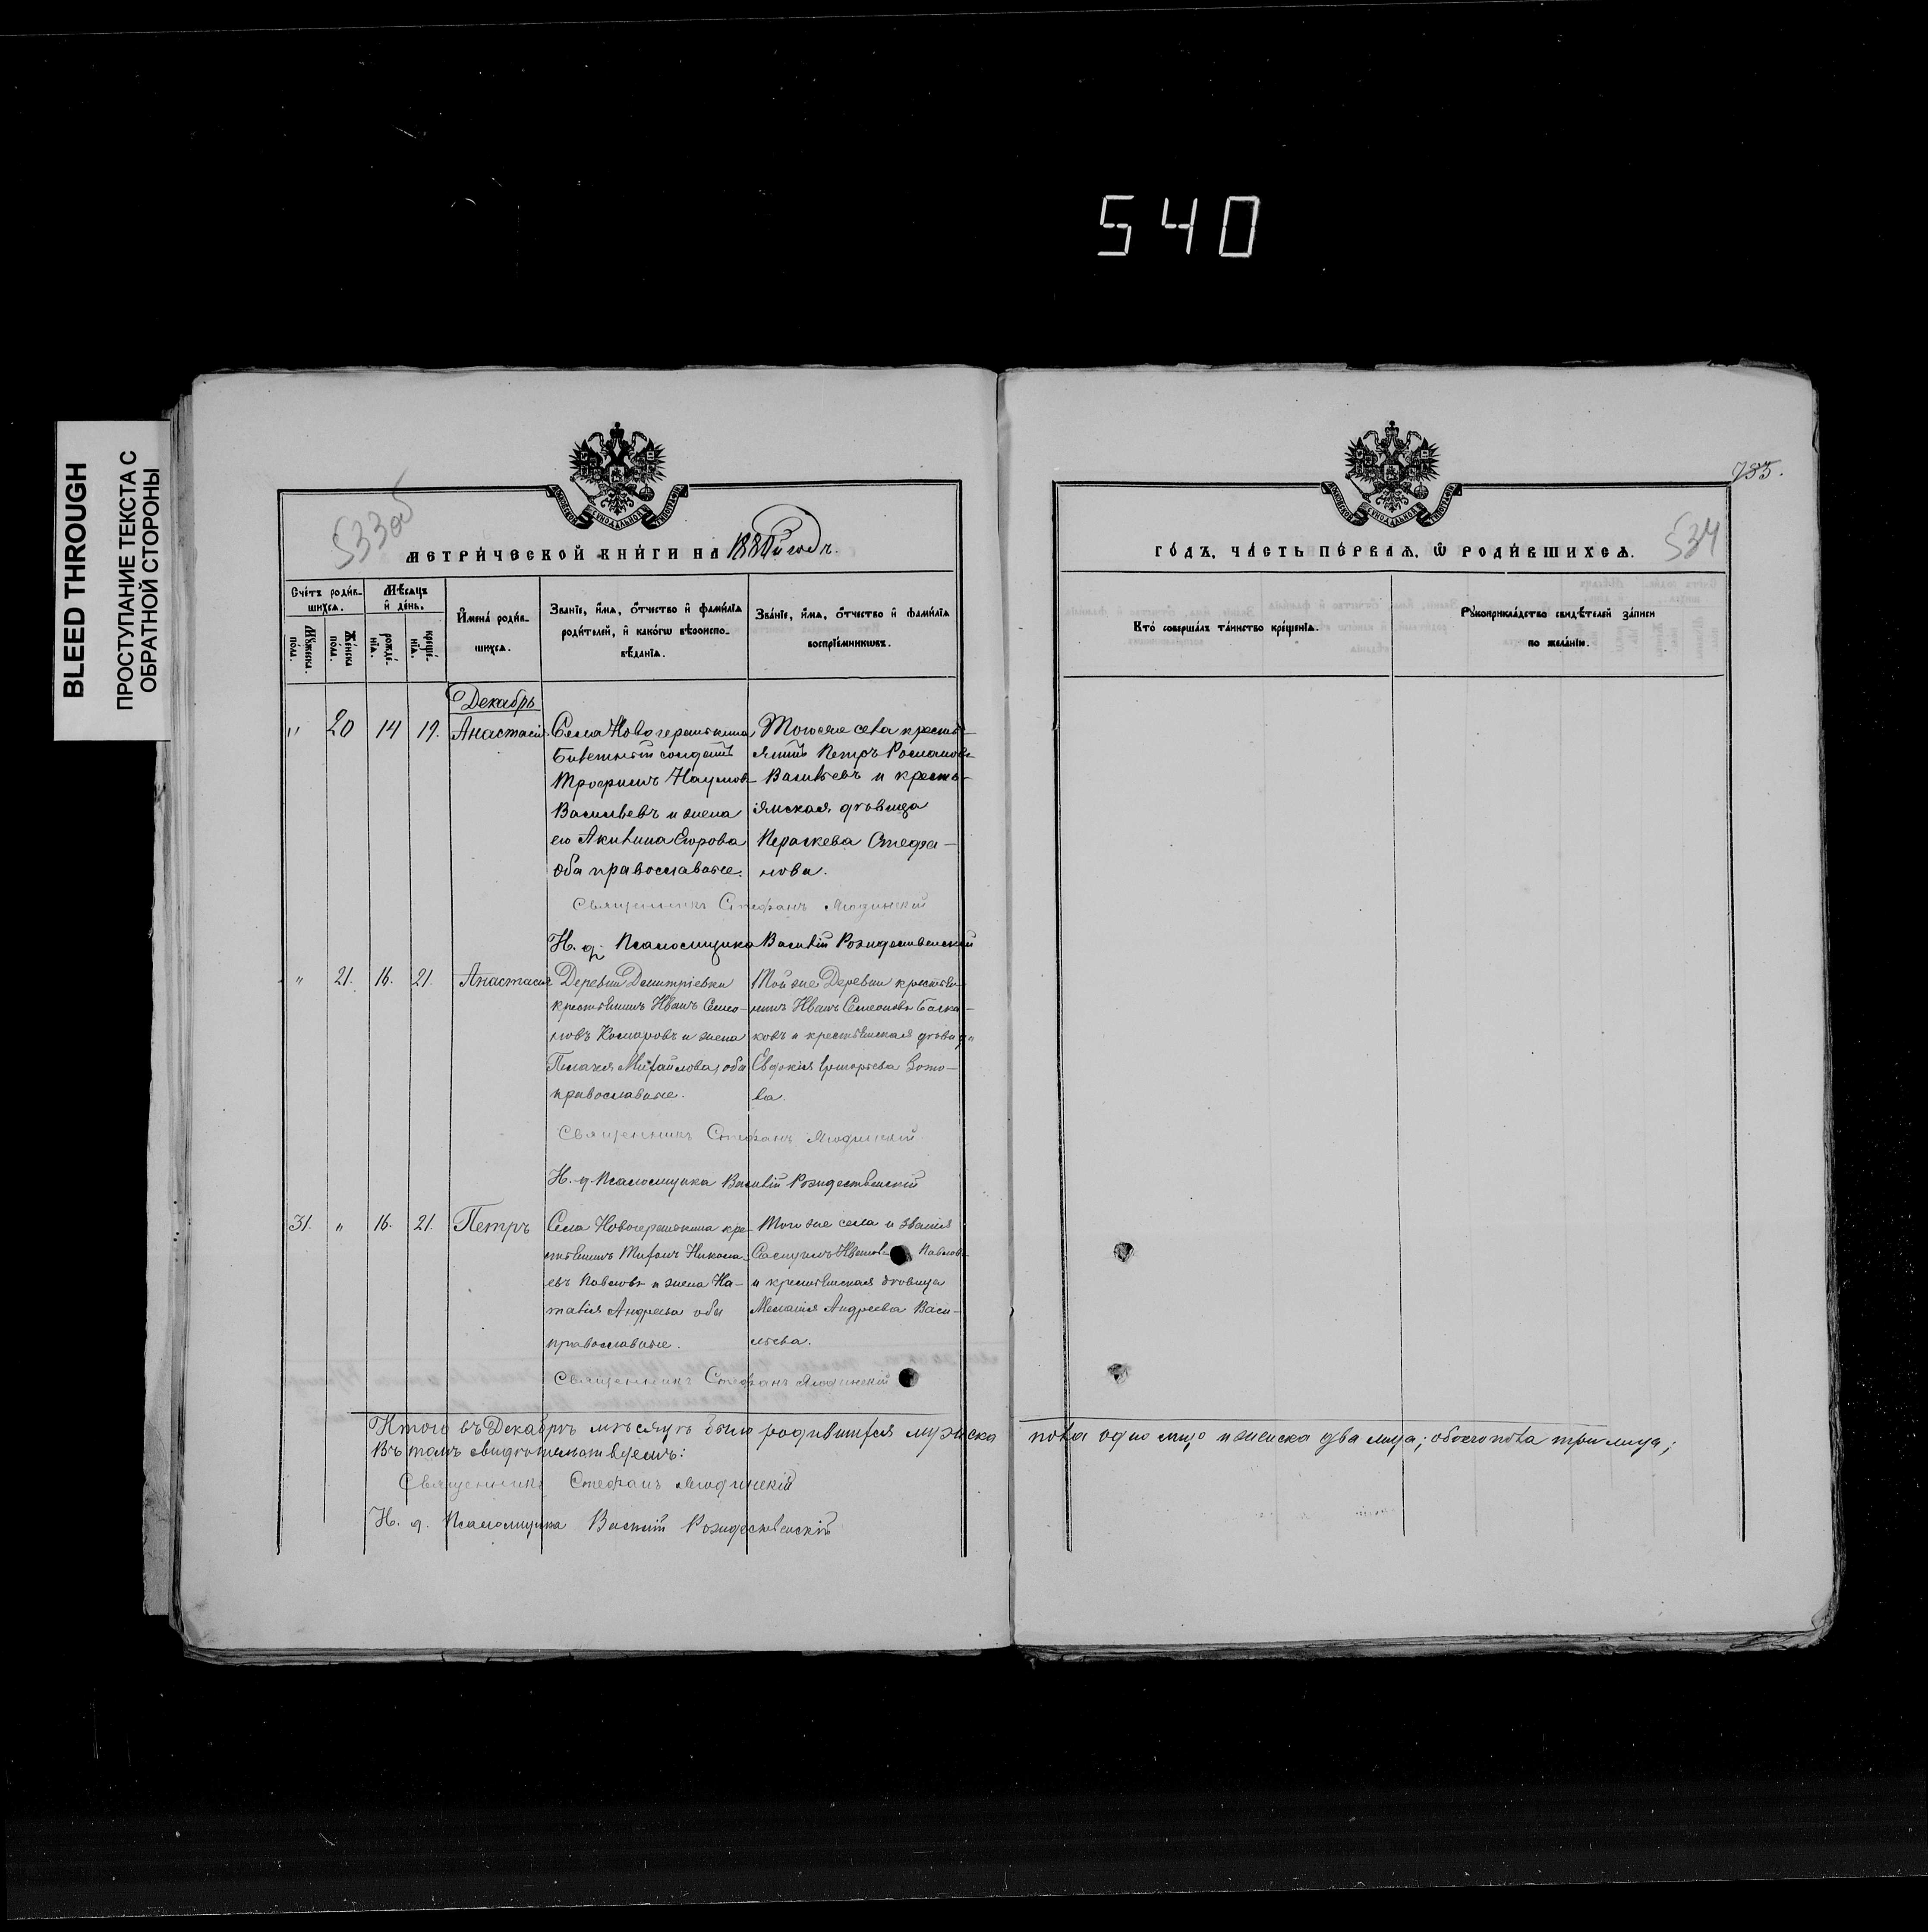 540
BLEED THROUGH
ПРОСТУПАНИЕ ТЕКСТА С
ОБРАТНОЙ СТОРОНЫ
533об
МЕТРИ́ЧЕСКОЙ КНИ́ГИ НА 188 й годъ.
Сче́тъ роди́в-
шихсѧ.
Мѣсѧцъ
и҆ де́нь.
Мꙋ́жеска
по́ла.
Же́нска
по́ла.
рожде́-
нїѧ.
креще́-
нїѧ.
И҆мена̀ роди́в-
шихсѧ.
Зва́нїе, и҆́мѧ, ѻ҆́тчество и҆ фами́лїѧ
роди́телей, и҆ како́гѡ вѣроиспо-
вѣ́данїѧ.
Зва́нїе, и҆́мѧ, ѻ҆́тчество и҆ фами́лїѧ
воспрїе́мникѡвъ.
Декабрь
" 20 14 19. Анастасія.
Села Новогеранькина
Билетный солдатъ
Трофимъ Наумовъ
Васильевъ и жена
его Акилина Егорова
оба православные.
Тогоже села кресть-
янинъ Петръ Романовъ
Васильевъ и кресть-
янская дѣвица
Параскева Стефа-
нова.
Священникъ Стефанъ
Н. д. Псаломщика Василій Рождественскій
" 21. 16. 21. Анастасія
Деревни Димитріевки
крестьянинъ Иванъ Семе-
новъ Комаровъ и жена
Пелагея Михайлова, оба
православные.
Той же Деревни крестья-
нинъ Иванъ Семеновъ
ковъ и крестьянская дѣвица
Евдокія Григорьева Зото-
ва.
Священникъ Стефанъ
Н. д. Псаломщика Василій Рождественскій
31. " 16. 21. Петръ
Села Новогеранькина кре-
стьянинъ Никола-
евъ Павловъ и жена На-
талія Андреева оба
православные.
Того же села и званія
Павловъ
и крестьянская дѣвица
Меланія Андреева Васи-
льева.
Священникъ Стефанъ
Итого въ Декабрѣ мѣсяцѣ было родившихся мужска
пола одно лицо и женска два лица; обоего пола три лица;
Въ томъ свидѣтельствуемъ:
Священникъ Стефанъ
Н. д. Псаломщика Василій Рождественскій
785.
534
ГО́ДЪ, ЧА́СТЬ ПЕ́РВАѦ, Ѡ҆ РОДИ́ВШИХСѦ.
Кто̀ соверша́лъ та́инство креще́нїѧ.
Рꙋкоприкла́дство свидѣ́телей за́писи
по жела́нїю.